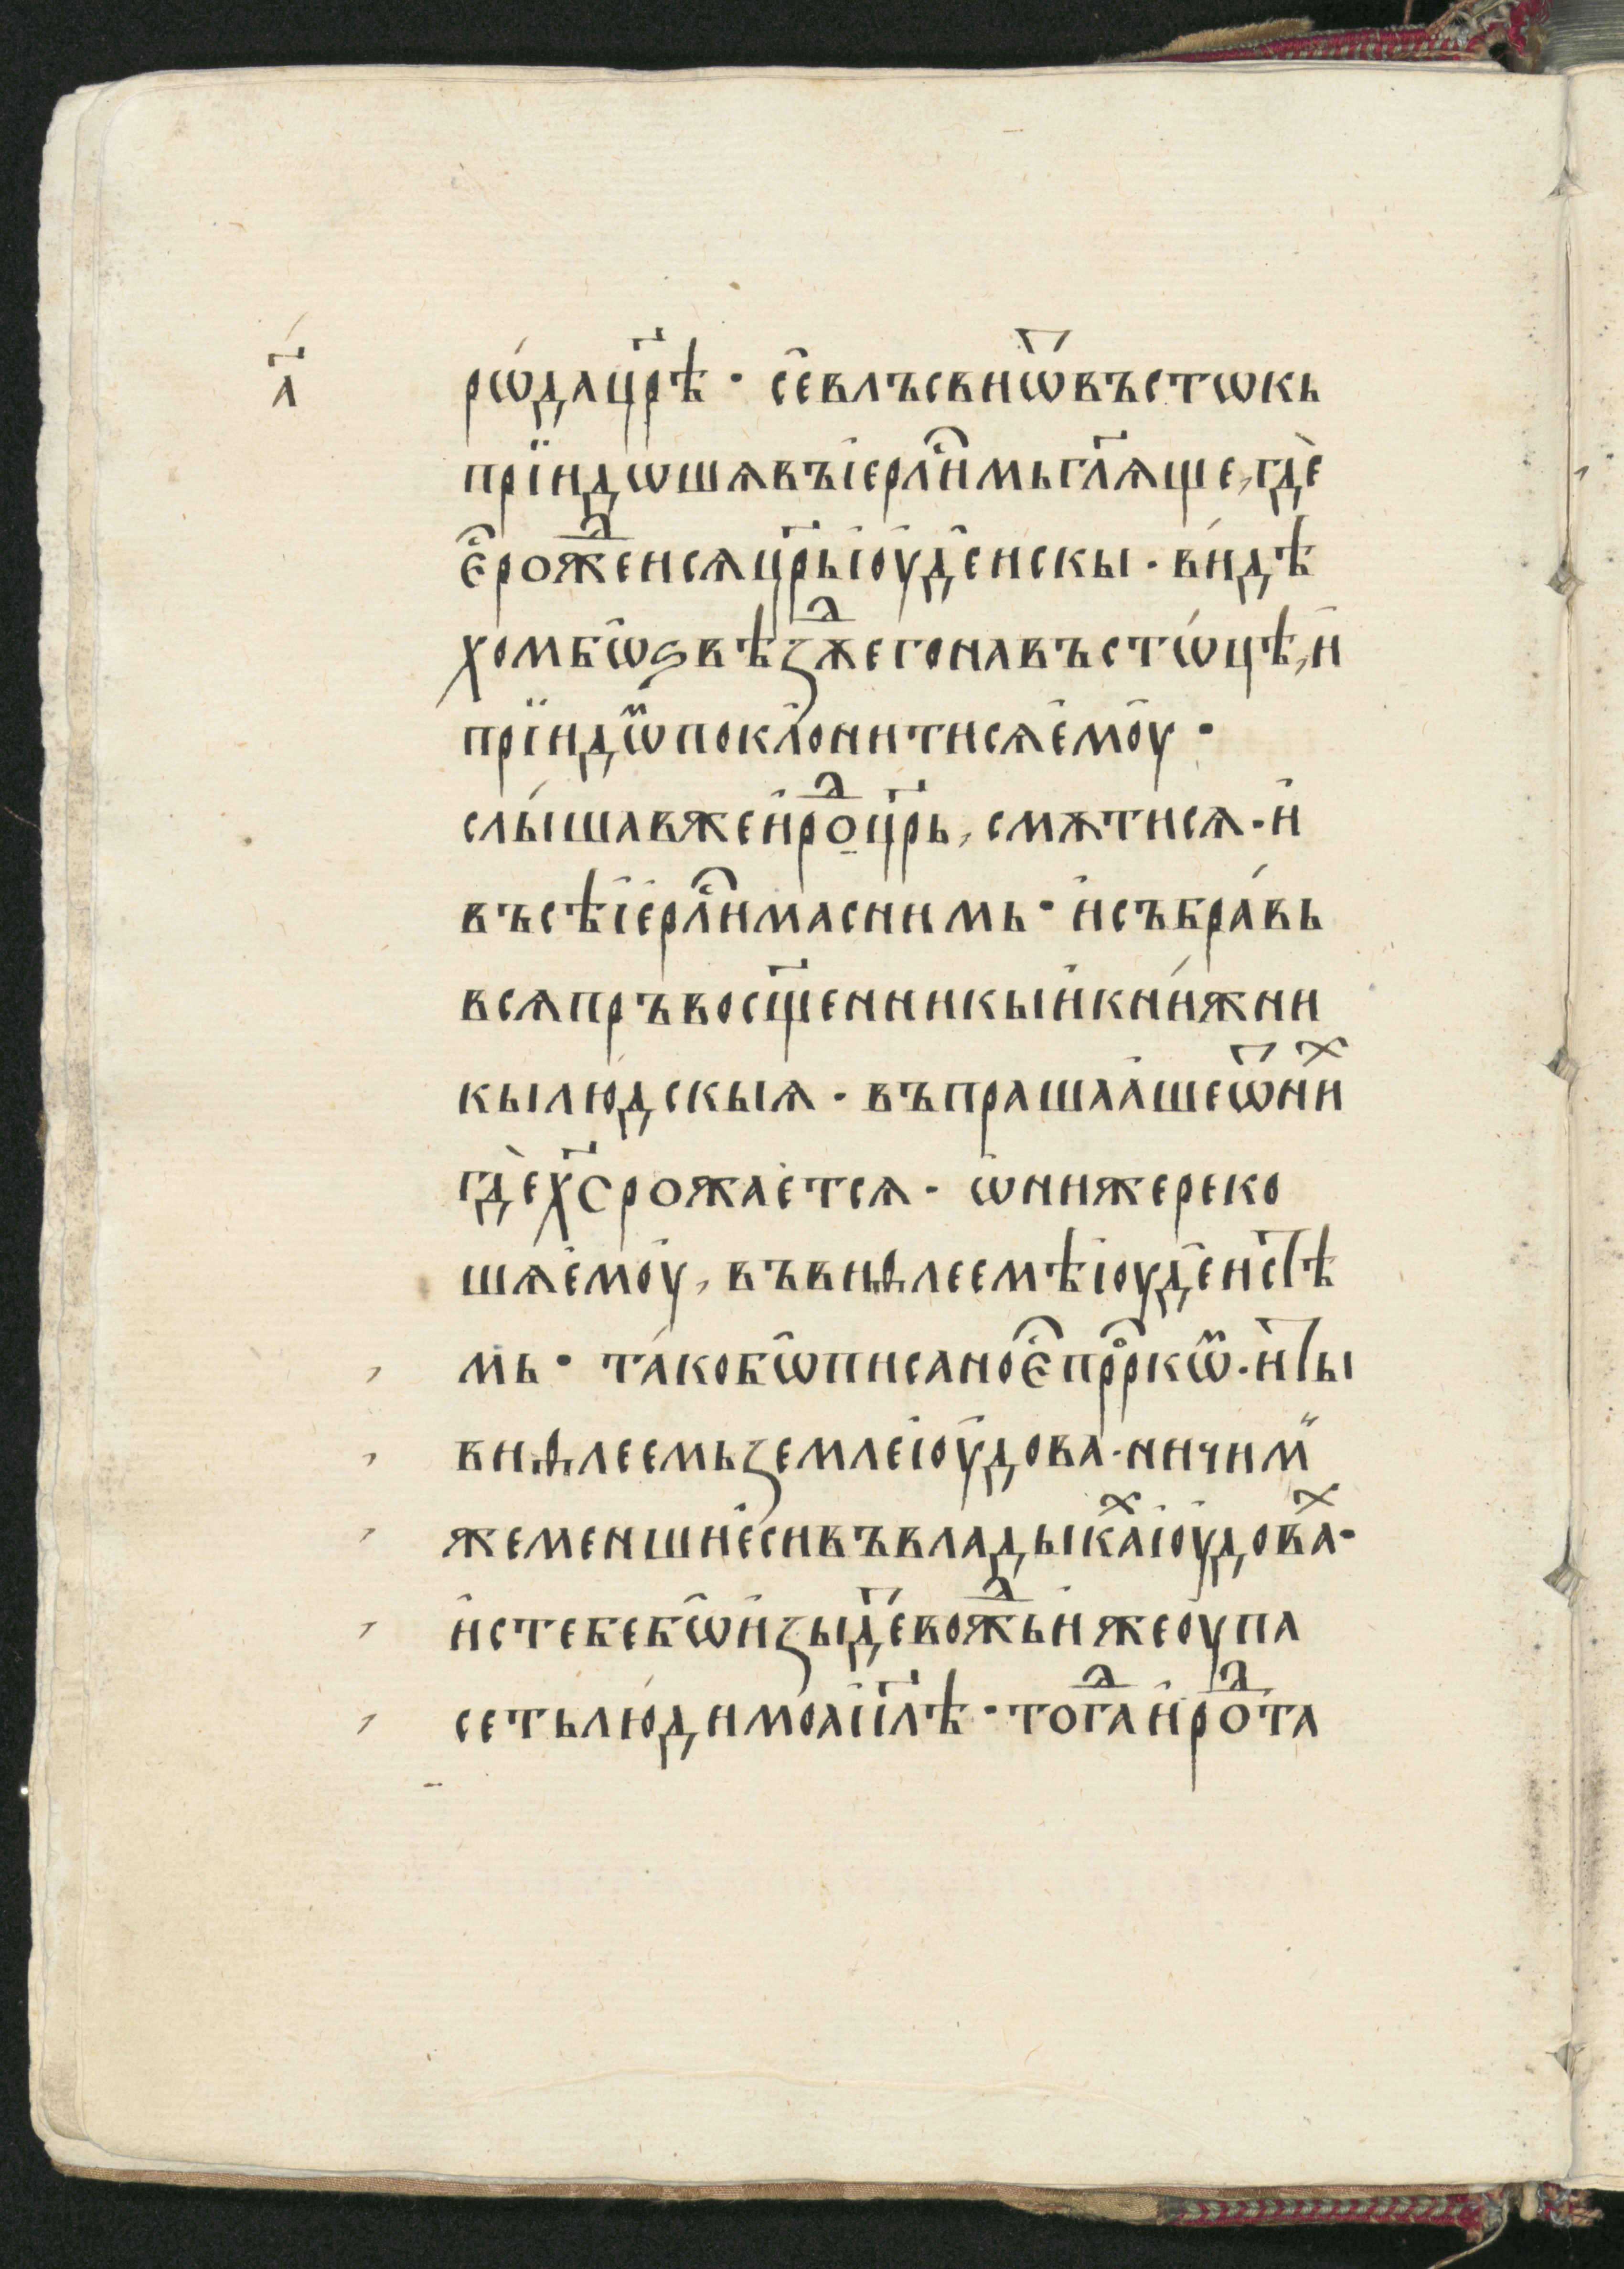 а҃
рѡ́да цр҃ѣ · се̑ влъсви ѿ въстѡкь
прїидѡшѧ въ і̑ерⷭ҇ли̑мь гл҃ѧще, гдѐ
є̑ⷭ рожⷣенсѧ цр҃ь і̑оу̑де̑искы · ви́дѣ
хом бѡ̑ ѕвѣзⷣѫ его на въстѡ́цѣ, и̑
прїидѡⷨ поклⷪони̑тисѧ е̑моу̑ ·
слы́шав же и̑роⷣ цр҃ь, смѫтисѧ · и̑
въсѣ̑ і̑ерⷭ҇ли̑ма с нимь · и̑ събра́вь
всѧ пръвосщ҃енникы и̑ кни́жни
кы лю́дскыѧ · въпрашаа̑ше ѿ ниⷯ
гдѐ х҃с ражае̑тсѧ · ѡ̑ниже реко
шѧ е̑моу̑, въ виѳлеемѣ і̑оуде̑истѣ
мь · та́ко бѡ̑ писано є̑ⷭ прⷪ҇ркѡⷨ · и̑ ты
виѳлеемь земле і̑оу̑дова · ничиⷨ
же менши е̑си въ влады́каⷯ і̑оу̑доваⷯ ·
и̑с тебе бѡ̑ и̑зы́детⷮ вожⷣь и̑же оу̑па
сеть лю́ди моѧ і̑ил҃ѣ · тогⷣа и̑роⷣ та